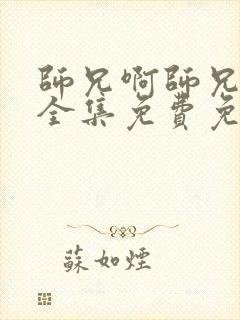 師兄啊師兄
全集免費免
蘇如煙